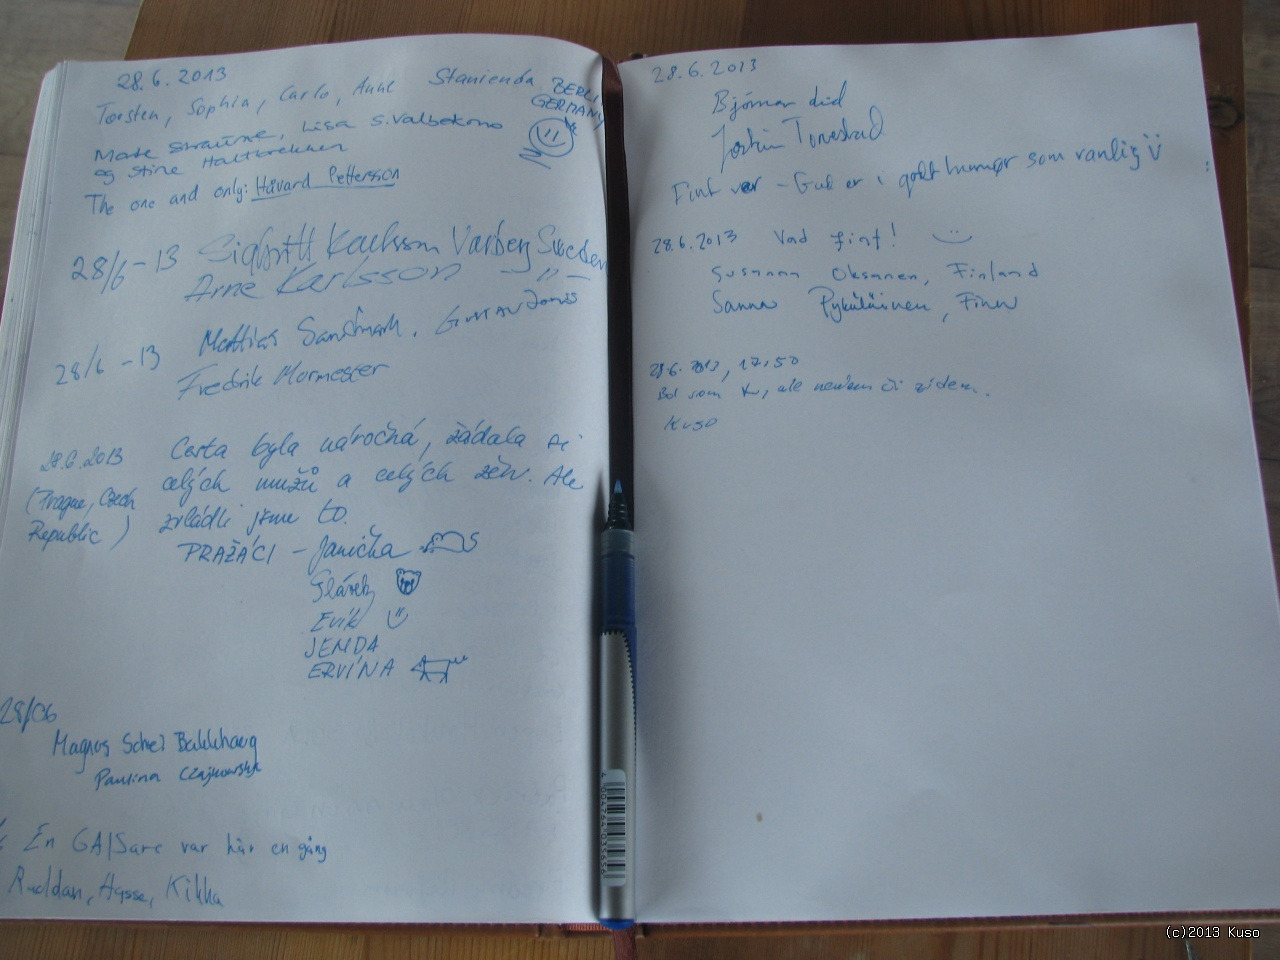 28.6.2013
Torsten, Sophia, Carlo, Anne Stanienda BERLI
GERMANY
Lisa S. Valbekmo
og Stine Haltbrekken
The one and only: Håvard Pettersson
28/6-13 Karlsson Varberg Sweden
Arne Karlsson —"—
28/6-13 Mattias Sandmark. GUSTAV Jonis
Fredrik Mormester
28.6.2013 Cesta byla náročná, žádala si
(Prague, Czech celých mužů a celých žen. Ale
Republic) zvládli jsme to.
PRAŽÁCI - Janička
Evík
JENDA
ERVÍNA
28/06
Magnus Schei Bakkhaug
Paulina Czajkowska
En GA/Sare var här en gång
Ruddan, Hasse, Kikka
28.6.2013
Bjørnar
Tonstad
Fint vær - Gud er i godt humør som vanlig
28.6.2013 Vad fint!
Susanna Oksanen, Finland
Sanna Pykäläinen, Finn
28.6.2013, 17:50
Bol som tu, ale neviem či zídem.
Kuso
4 004764 035656
(c)2013 Kuso